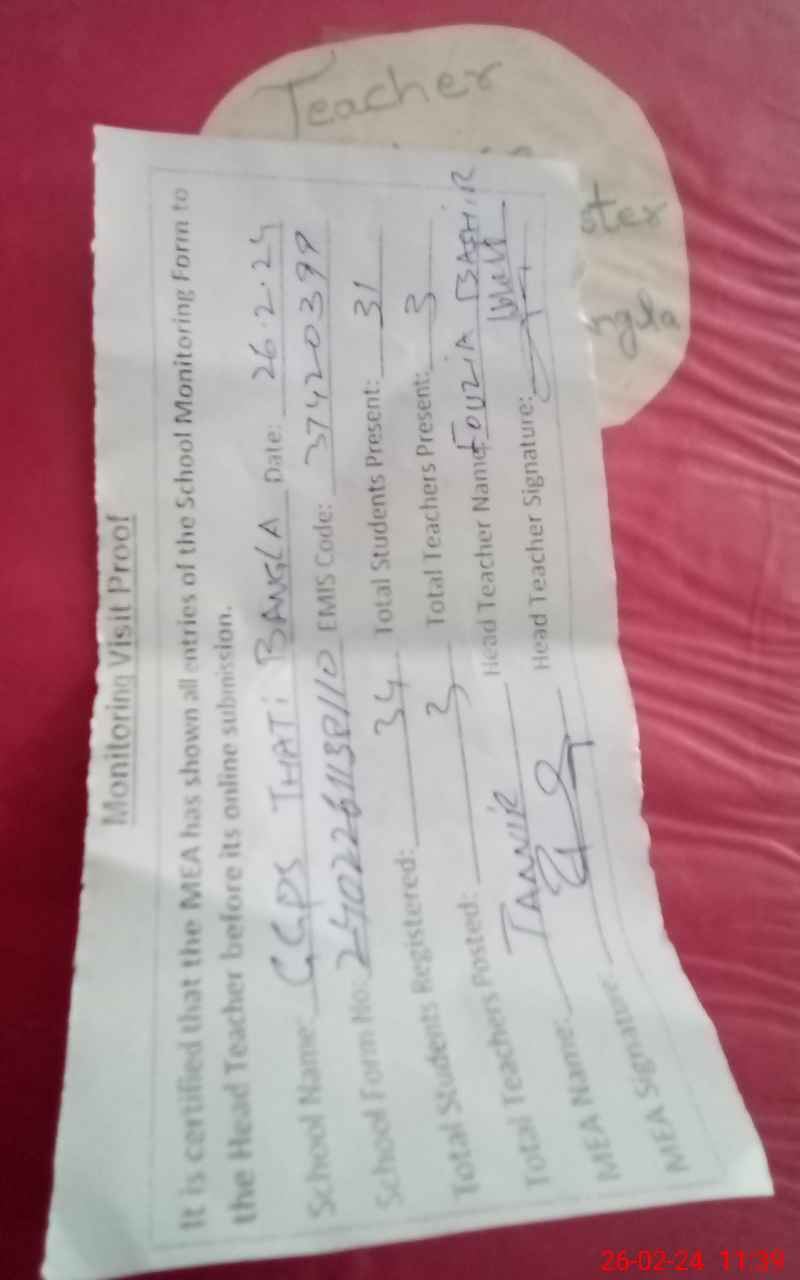 Teacher
ster
ngla
Monitoring Visit Proof
It is certified that the MEA has shown all entries of the School Monitoring Form to
the Head Teacher before its online submission.
School Name: GGPS THATi BANGLA Date: 26.2.24
School Form No: EMIS Code: 37420399
Total Students Registered: 34 Total Students Present: 31
Total Teachers Posted: 3 Total Teachers Present: 3
MEA Name: TANVIR Head Teacher Name FOUZIA BASHIR
MEA Signature: Head Teacher Signature:
26-02-24 11:39